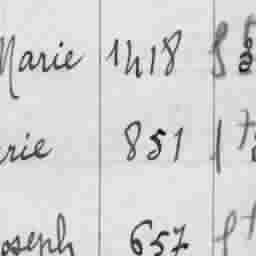 Marie 1418
rie 851
oseph 657